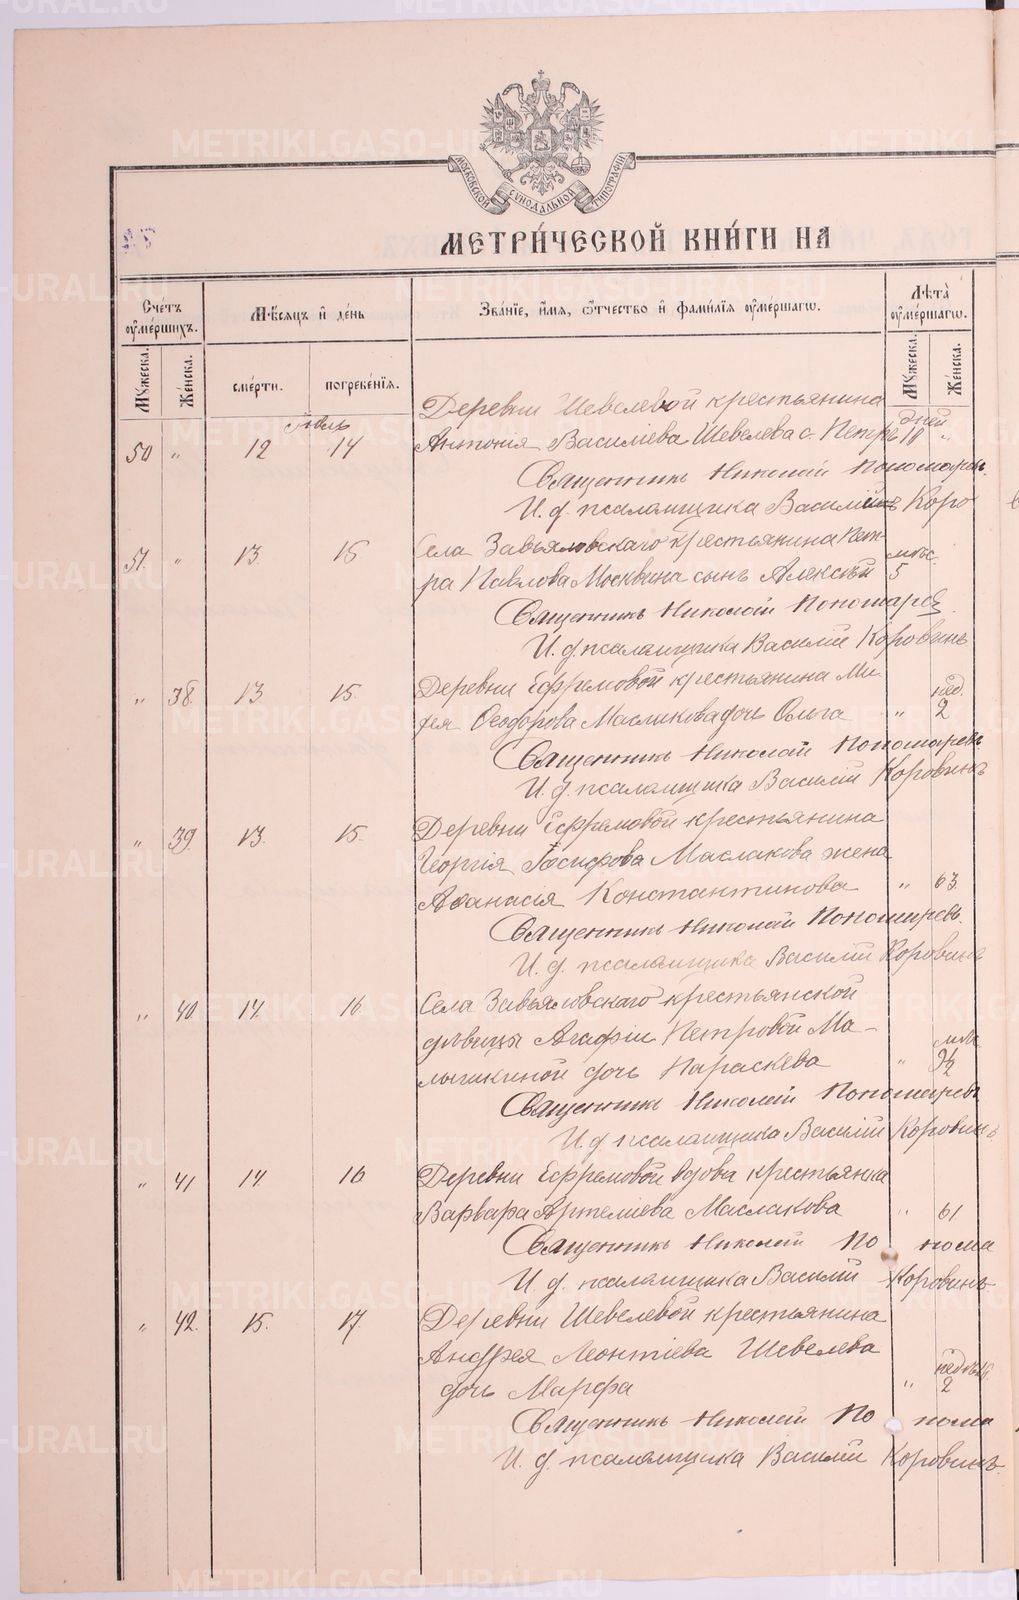 METRIKI.GASO-URAL.RU
МОСКОВСКОЙ СѴНОДАЛЬНОЙ ТИПОГРАФІИ
МЕТРИ́ЧЕСКОЙ КНИ́ГИ НА
Сче́тъ оумершихъ.
Мѣ́сяцъ и҆ де́нь
Зва́нїе, и҆́мѧ, ѻ҆́тчество и҆ фами́лїѧ оумершагѡ.
Лѣта̀ оумершагѡ.
Му́жеска.
Же́нска.
сме́рти.
погребе́нїѧ.
Му́жеска.
Же́нска.
Деревни Шевелевой крестьянина
Іюль
дней
50 " 12 14 Антонія Василіева Шевелева с. Петръ 10 "
Священникъ Николай Пономаревъ.
И. д. псаломщика Василій Коро
51. " 13. 15 Села Завьяловскаго крестьянина Пет-
ра Павлова Москвина сынъ Алексѣй мѣс. 5
Священникъ Николай Пономарев
И. д. псаломщика Василій Коровинъ
" 38. 13 15. Деревни Ефремовой крестьянина Ми-
нед.
Ѳеодорова Маслакова дочь Ольга " 2
Священникъ Николай Пономаревъ
И. д. псаломщика Василій Коровинъ
" 39. 13. 15. Деревни Ефремовой крестьянина
Георгія Іосифова Маслакова жена
Аѳанасія Константинова " 63.
Священникъ Николай Пономаревъ.
И. д. псаломщика Василій Коровинъ
" 40 14. 16. Села Завьяловскаго крестьянской
дѣвицы Агафіи Петровой Ма-
лыгикиной дочь Параскева "
Священникъ Николай Пономаревъ
И. д. псаломщика Василій Коровинъ
" 41 14. 16 Деревни Ефремовой вдова крестьянка
Варвара Артеміева Маслакова " 61
Священникъ Николай По нома
И. д. псаломщика Василій Коровинъ
" 42. 15. 17. Деревни Шевелевой крестьянина
Андрея Леонтіева Шевелева
дочь Марфа " 2
Священникъ Николай По нома
И. д. псаломщика Василій Коровинъ.